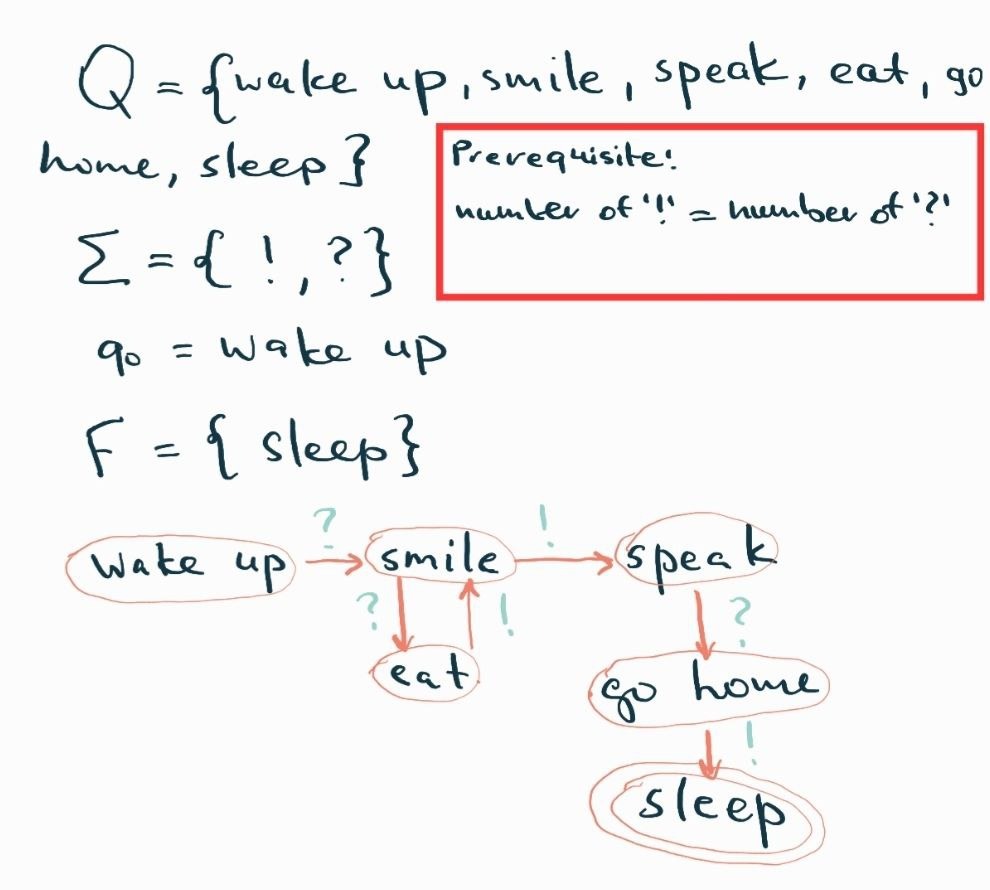 Q = {wake up, smile, speak, eat, go
home, sleep}
Prerequisite:
number of '!' = number of '?'
Σ = { !, ?}
q₀ = wake up
F = { sleep}
? !
wake up smile speak
? ! ?
eat go home
!
sleep